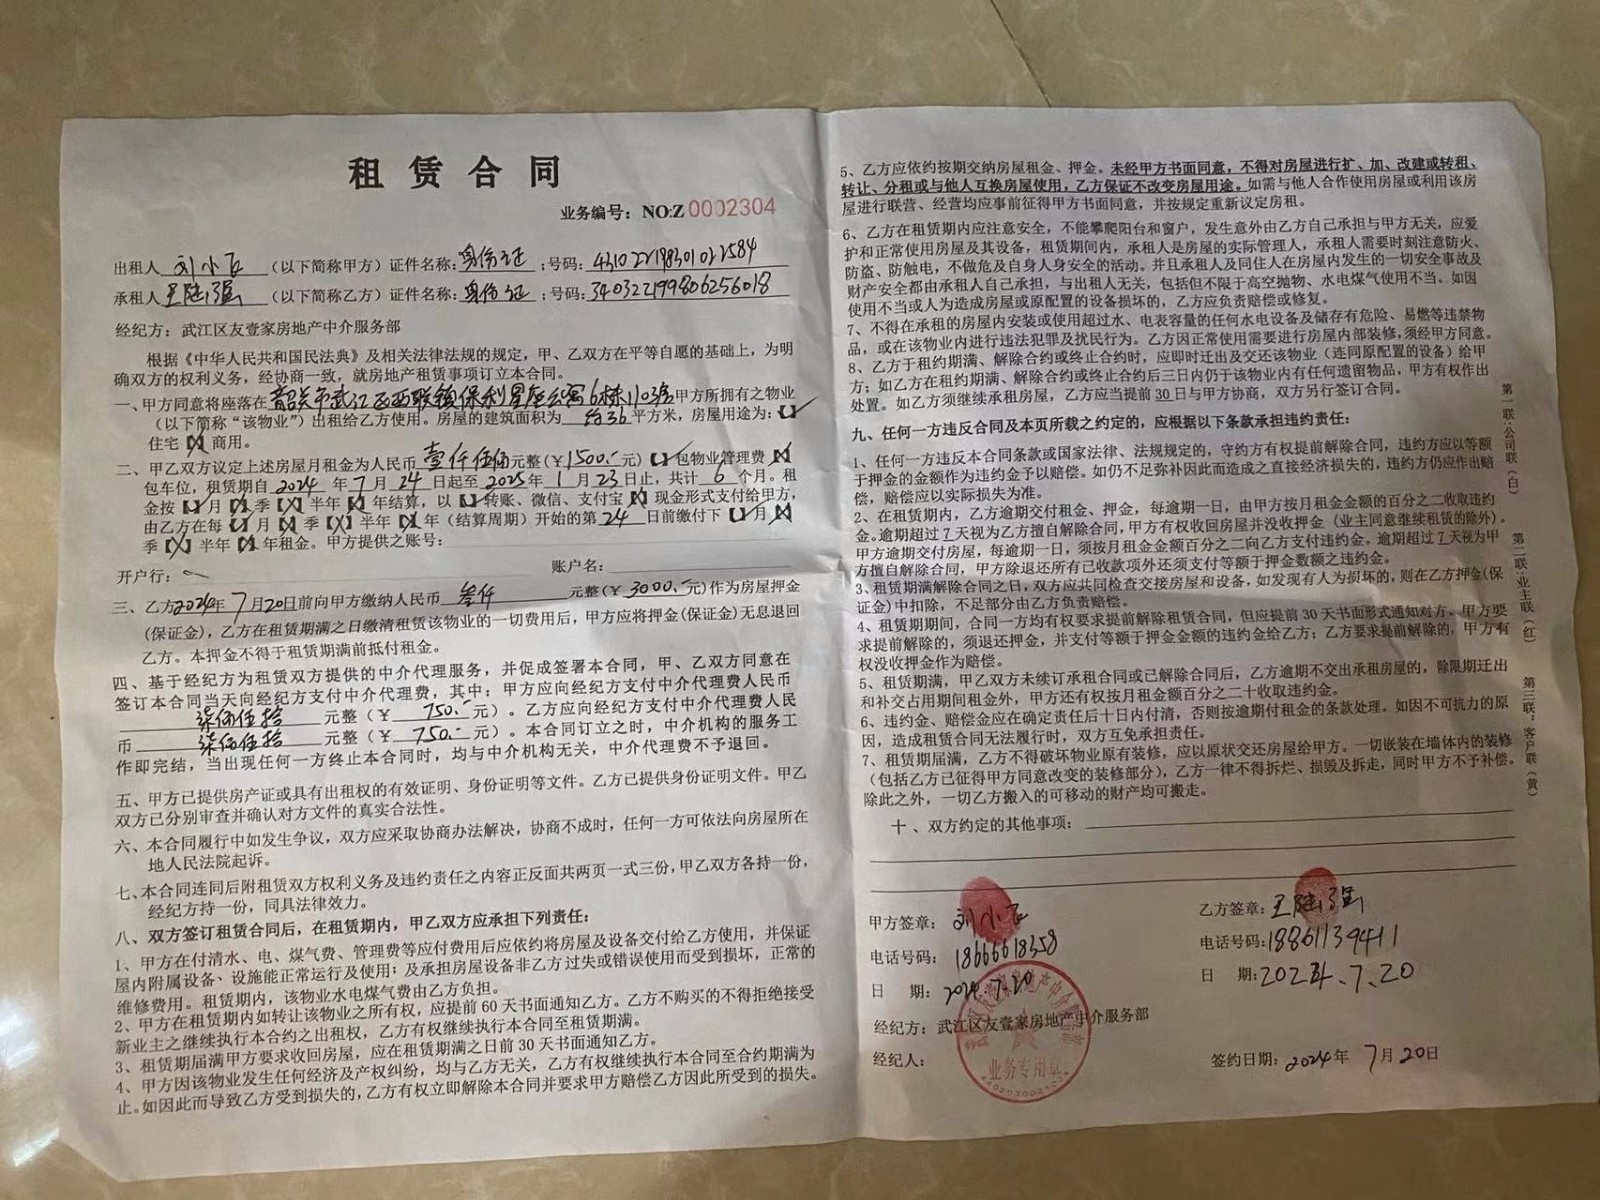 租赁合同
业务编号：NO:Z 0002304
出租人 刘小飞 （以下简称甲方）证件名称：身份证；号码：431022198301022584
承租人 王陆强 （以下简称乙方）证件名称：身份证；号码：340322199806256018
经纪方：武江区友壹家房地产中介服务部
根据《中华人民共和国民法典》及相关法律法规的规定，甲、乙双方在平等自愿的基础上，为明
确双方的权利义务，经协商一致，就房地产租赁事项订立本合同。
一、甲方同意将座落在韶关市武江区西联镇保利星座公寓6栋1103房甲方所拥有之物业
（以下简称“该物业”）出租给乙方使用。房屋的建筑面积为 约36 平方米，房屋用途为：【✓】
住宅【X】商用。
二、甲乙双方议定上述房屋月租金为人民币 壹仟伍佰 元整（￥1500.-元）【✓】包物业管理费【X】
包车位，租赁期自 2024 年 7 月 24 日起至 2025 年 1 月 23 日止，共计 6 个月。租
金按【✓】月【X】季【X】半年【X】年结算，以【✓】转账、微信、支付宝【X】现金形式支付给甲方，
由乙方在每【✓】月【X】季【X】半年【X】年（结算周期）开始的第 24 日前缴付下【✓】月【X】
季【X】半年【X】年租金。甲方提供之账号：
开户行： 账户名：
三、乙方2024年7月20日前向甲方缴纳人民币 叁仟 元整（￥3000.-元）作为房屋押金
（保证金），乙方在租赁期满之日缴清租赁该物业的一切费用后，甲方应将押金（保证金）无息退回
乙方。本押金不得于租赁期满前抵付租金。
四、基于经纪方为租赁双方提供的中介代理服务，并促成签署本合同，甲、乙双方同意在
签订本合同当天向经纪方支付中介代理费，其中：甲方应向经纪方支付中介代理费人民币
柒佰伍拾 元整（￥ 750.- 元）。乙方应向经纪方支付中介代理费人民
币 柒佰伍拾 元整（￥ 750.- 元）。本合同订立之时，中介机构的服务工
作即完结，当出现任何一方终止本合同时，均与中介机构无关，中介代理费不予退回。
五、甲方已提供房产证或具有出租权的有效证明、身份证明等文件。乙方已提供身份证明文件。甲乙
双方已分别审查并确认对方文件的真实合法性。
六、本合同履行中如发生争议，双方应采取协商办法解决，协商不成时，任何一方可依法向房屋所在
地人民法院起诉。
七、本合同连同后附租赁双方权利义务及违约责任之内容正反面共两页一式三份，甲乙双方各持一份，
经纪方持一份，同具法律效力。
八、双方签订租赁合同后，在租赁期内，甲乙双方应承担下列责任：
1、甲方在付清水、电、煤气费、管理费等应付费用后应依约将房屋及设备交付给乙方使用，并保证
屋内附属设备、设施能正常运行及使用；及承担房屋设备非乙方过失或错误使用而受到损坏，正常的
维修费用。租赁期内，该物业水电煤气费由乙方负担。
2、甲方在租赁期内如转让该物业之所有权，应提前60天书面通知乙方。乙方不购买的不得拒绝接受
新业主之继续执行本合约之出租权，乙方有权继续执行本合同至租赁期满。
3、租赁期届满甲方要求收回房屋，应在租赁期满之日前30天书面通知乙方。
4、甲方因该物业发生任何经济及产权纠纷，均与乙方无关，乙方有权继续执行本合同至合约期满为
止。如因此而导致乙方受到损失的，乙方有权立即解除本合同并要求甲方赔偿乙方因此所受到的损失。
5、乙方应依约按期交纳房屋租金、押金。未经甲方书面同意，不得对房屋进行扩、加、改建或转租、
转让、分租或与他人互换房屋使用，乙方保证不改变房屋用途。如需与他人合作使用房屋或利用该房
屋进行联营、经营均应事前征得甲方书面同意，并按规定重新议定房租。
6、乙方在租赁期内应注意安全，不能攀爬阳台和窗户，发生意外由乙方自己承担与甲方无关，应爱
护和正常使用房屋及其设备，租赁期间内，承租人是房屋的实际管理人，承租人需要时刻注意防火、
防盗、防触电，不做危及自身人身安全的活动。并且承租人及同住人在房屋内发生的一切安全事故及
财产安全都由承租人自己承担，与出租人无关，包括但不限于高空抛物、水电煤气使用不当。如因
使用不当或人为造成房屋或原配置的设备损坏的，乙方应负责赔偿或修复。
7、不得在承租的房屋内安装或使用超过水、电表容量的任何水电设备及储存有危险、易燃等违禁物
品，或在该物业内进行违法犯罪及扰民行为。乙方因正常使用需要进行房屋内部装修，须经甲方同意。
8、乙方于租约期满、解除合约或终止合约时，应即时迁出及交还该物业（连同原配置的设备）给甲
方；如乙方在租约期满、解除合约或终止合约后三日内仍于该物业内有任何遗留物品，甲方有权作出
处置。如乙方须继续承租房屋，乙方应当提前30日与甲方协商，双方另行签订合同。
九、任何一方违反合同及本页所载之约定的，应根据以下条款承担违约责任：
1、任何一方违反本合同条款或国家法律、法规规定的，守约方有权提前解除合同，违约方应以等额
于押金的金额作为违约金予以赔偿。如仍不足弥补因此而造成之直接经济损失的，违约方仍应作出赔
偿，赔偿应以实际损失为准。
2、在租赁期内，乙方逾期交付租金、押金，每逾期一日，由甲方按月租金金额的百分之二收取违约
金。逾期超过7天视为乙方擅自解除合同，甲方有权收回房屋并没收押金（业主同意继续租赁的除外）。
甲方逾期交付房屋，每逾期一日，须按月租金金额百分之二向乙方支付违约金。逾期超过7天视为甲
方擅自解除合同，甲方除退还所有已收款项外还须支付等额于押金数额之违约金。
3、租赁期满解除合同之日，双方应共同检查交接房屋和设备，如发现有人为损坏的，则在乙方押金（保
证金）中扣除，不足部分由乙方负责赔偿。
4、租赁期期间，合同一方均有权要求提前解除租赁合同，但应提前30天书面形式通知对方。甲方要
求提前解除的，须退还押金，并支付等额于押金金额的违约金给乙方；乙方要求提前解除的，甲方有
权没收押金作为赔偿。
5、租赁期满，甲乙双方未续订承租合同或已解除合同后，乙方逾期不交出承租房屋的，除限期迁出
和补交占用期间租金外，甲方还有权按月租金额百分之二十收取违约金。
6、违约金、赔偿金应在确定责任后十日内付清，否则按逾期付租金的条款处理。如因不可抗力的原
因，造成租赁合同无法履行时，双方互免承担责任。
7、租赁期届满，乙方不得破坏物业原有装修，应以原状交还房屋给甲方。一切嵌装在墙体内的装修
（包括乙方已征得甲方同意改变的装修部分），乙方一律不得拆烂、损毁及拆走，同时甲方不予补偿。
除此之外，一切乙方搬入的可移动的财产均可搬走。
十、双方约定的其他事项：
甲方签章：刘小飞
乙方签章：王陆强
电话号码：18666618358
电话号码：18861139411
日 期：2024.7.20
日 期：2024.7.20
经纪方：武江区友壹家房地产中介服务部
经纪人：
业务专用章
签约日期：2024年 7月20日
第一联：公司联（白）
第二联：业主联（红）
第三联：客户联（黄）